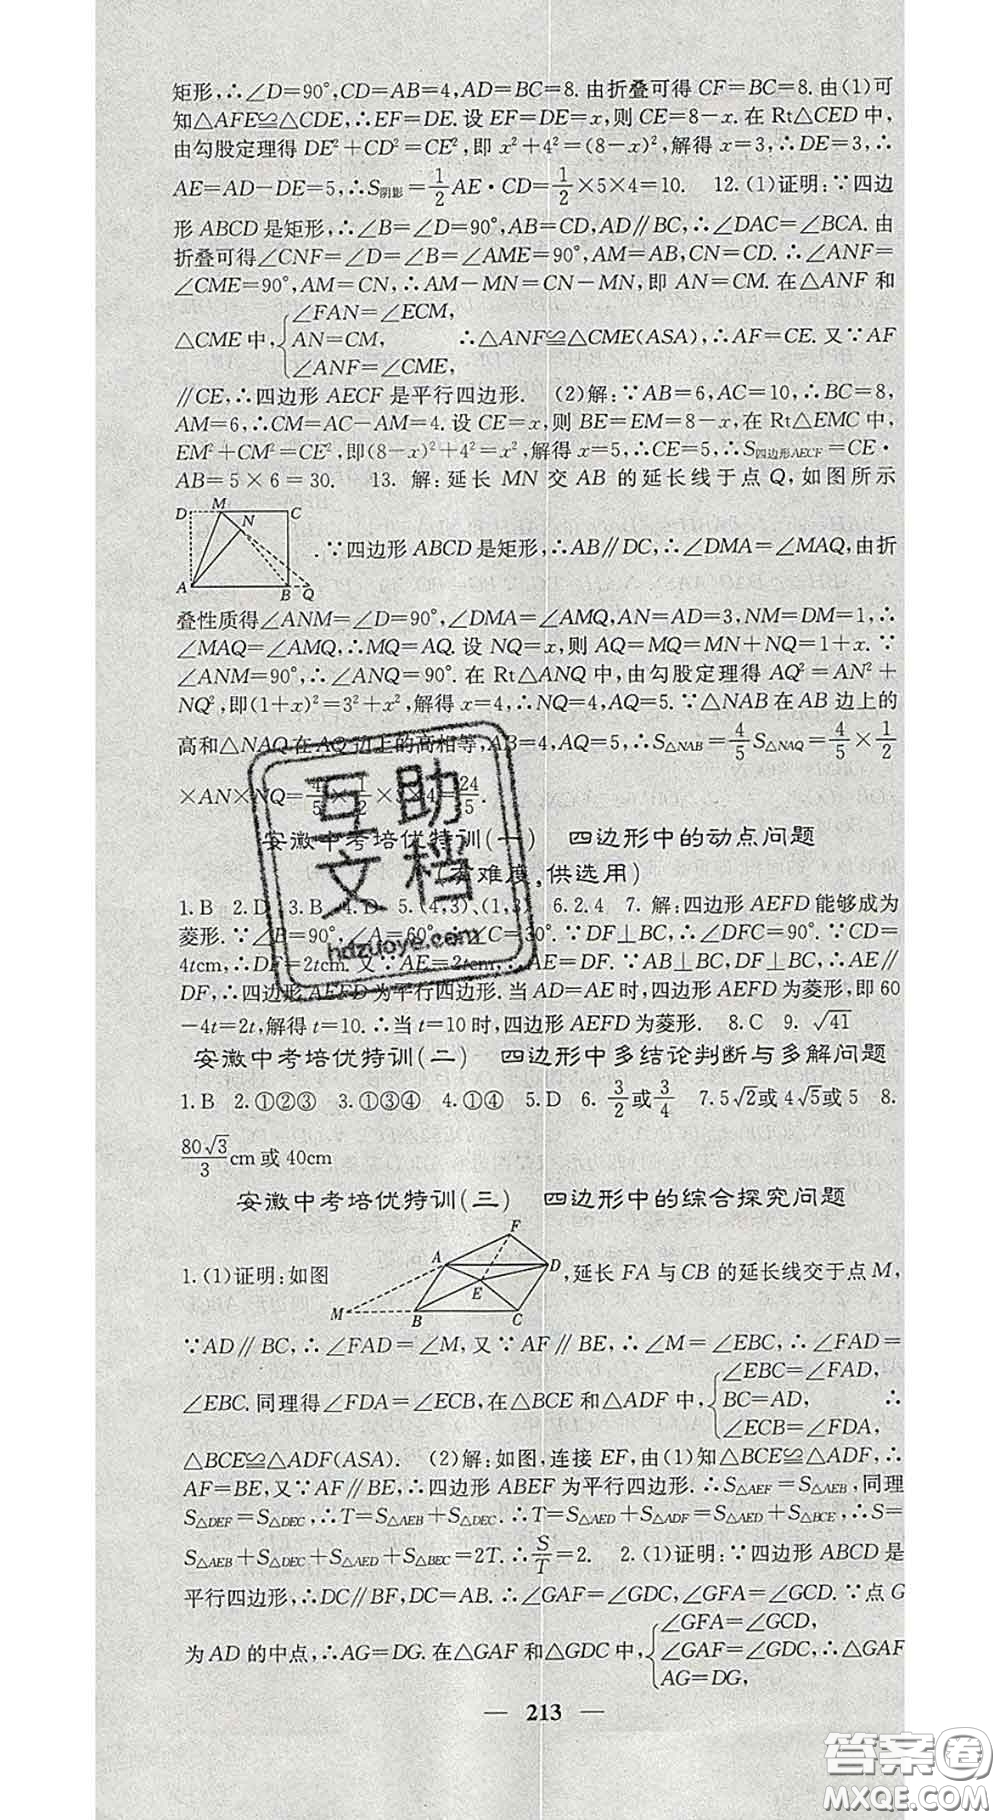 矩形,∴∠D=90°,CD=AB=4,AD=BC=8.由折叠可得CF=BC=8.由(1)可
知△AFE≌△CDE,∴EF=DE.设EF=DE=x,则CE=8-x.在Rt△CED中,
由勾股定理得DE²+CD²=CE²,即x²+4²=(8-x)²,解得x=3,∴DE=3,∴
AE=AD-DE=5,∴S阴影=1/2AE·CD=1/2×5×4=10. 12.(1)证明:∵四边
形ABCD是矩形,∴∠B=∠D=90°,AB=CD,AD∥BC,∴∠DAC=∠BCA.由
折叠可得∠CNF=∠D=∠B=∠AME=90°,AM=AB,CN=CD.∴∠ANF=
∠CME=90°,AM=CN,∴AM-MN=CN-MN,即AN=CM.在△ANF和
∠FAN=∠ECM,
△CME中,{AN=CM, ∴△ANF≌△CME(ASA),∴AF=CE.又∵AF
∠ANF=∠CME,
∥CE,∴四边形AECF是平行四边形. (2)解:∵AB=6,AC=10,∴BC=8,
AM=6,∴CM=AC-AM=4.设CE=x,则BE=EM=8-x,在Rt△EMC中,
EM²+CM²=CE²,即(8-x)²+4²=x²,解得x=5,∴CE=5,∴S四边形AECF=CE·
AB=5×6=30. 13.解:延长MN交AB的延长线于点Q,如图所示
D M C
N
A B Q
.∵四边形ABCD是矩形,∴AB∥DC,∴∠DMA=∠MAQ,由折
叠性质得∠ANM=∠D=90°,∠DMA=∠AMQ,AN=AD=3,NM=DM=1,∴
∠MAQ=∠AMQ,∴MQ=AQ.设NQ=x,则AQ=MQ=MN+NQ=1+x.∵
∠ANM=90°,∴∠ANQ=90°.在Rt△ANQ中,由勾股定理得AQ²=AN²+
NQ²,即(1+x)²=3²+x²,解得x=4,∴NQ=4,AQ=5.∵△NAB在AB边上的
高和△NAQ在AQ边上的高相等,AB=4,AQ=5,∴S△NAB=4/5S△NAQ=4/5×1/2
×AN×NQ=4/5×1/2×3×4=24/5.
安徽中考培优特训(一) 四边形中的动点问题
(有难度,供选用)
1.B 2.D 3.B 4.D 5.(4,3)、(1,3) 6.2.4 7.解:四边形AEFD能够成为
菱形.∵∠B=90°,∠A=60°,∴∠C=30°.∵DF⊥BC,∴∠DFC=90°.∵CD=
4tcm,∴DF=2tcm.又∵AE=2tcm,∴AE=DF.∵AB⊥BC,DF⊥BC,∴AE∥
DF,∴四边形AEFD为平行四边形.当AD=AE时,四边形AEFD为菱形,即60
-4t=2t,解得t=10.∴当t=10时,四边形AEFD为菱形. 8.C 9.√41
安徽中考培优特训(二) 四边形中多结论判断与多解问题
1.B 2.①②③ 3.①③④ 4.①④ 5.D 6.3/2或3/4 7.5√2或4√5或5 8.
80√3/3cm或40cm
安徽中考培优特训(三) 四边形中的综合探究问题
F
A D
E
M B C
1.(1)证明:如图 ,延长FA与CB的延长线交于点M,
∵AD∥BC,∴∠FAD=∠M,又∵AF∥BE,∴∠M=∠EBC,∴∠FAD=
∠EBC=∠FAD,
∠EBC.同理得∠FDA=∠ECB,在△BCE和△ADF中,{BC=AD, ∴
∠ECB=∠FDA,
△BCE≌△ADF(ASA). (2)解:如图,连接EF,由(1)知△BCE≌△ADF,∴
AF=BE,又∵AF∥BE,∴四边形ABEF为平行四边形.∴S△AEF=S△AEB,同理
S△DEF=S△DEC,∴T=S△AEB+S△DEC.∴T=S△AED+S△ADF=S△AED+S△BCE,∴S=
S△AEB+S△DEC+S△AED+S△BEC=2T.∴S/T=2. 2.(1)证明:∵四边形ABCD是
平行四边形,∴DC∥BF,DC=AB.∴∠GAF=∠GDC,∠GFA=∠GCD.∵点G
∠GFA=∠GCD,
为AD的中点,∴AG=DG.在△GAF和∠GDC中,{∠GAF=∠GDC,∴△GAF
AG=DG,
— 213 —
互助
文档
hdzuoye.com
答案圈
MXQE.COM